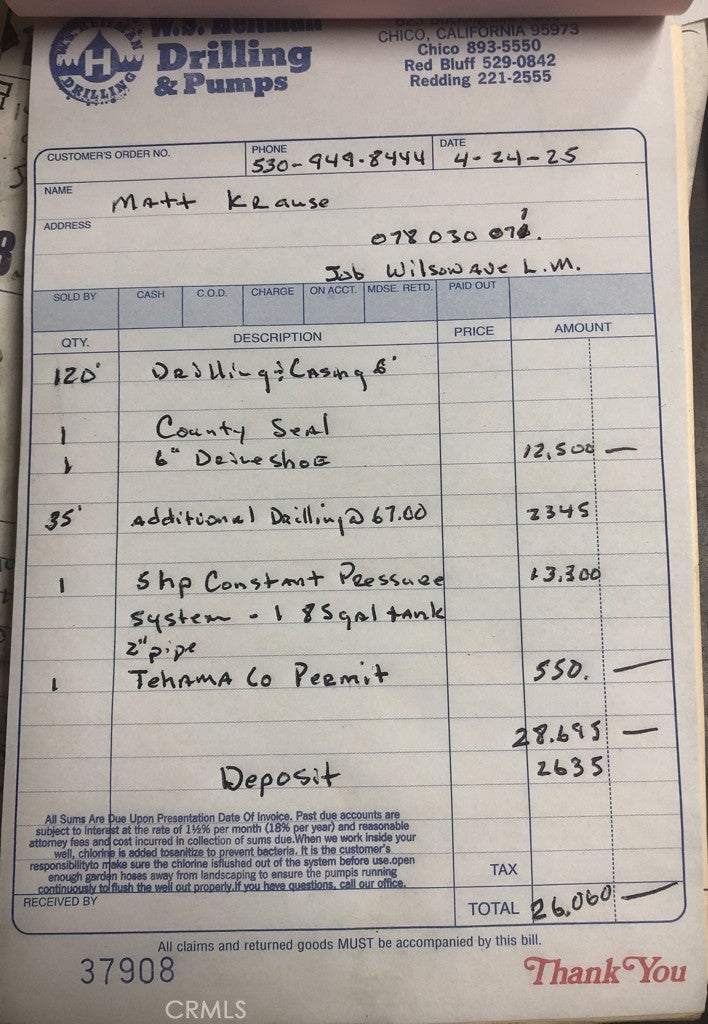 W.S. HEITMAN DRILLING
H
W.S. Heitman
Drilling
& Pumps
CHICO, CALIFORNIA 95973
Chico 893-5550
Red Bluff 529-0842
Redding 221-2555
CUSTOMER'S ORDER NO. PHONE 530-949-8444 DATE 4-24-25
NAME Matt Krause
ADDRESS
078 030 071.
Job Wilson Ave L.M.
SOLD BY CASH C.O.D. CHARGE ON ACCT. MDSE. RETD. PAID OUT
QTY. DESCRIPTION PRICE AMOUNT
120' Drilling & Casing 6"
1 County Seal
1 6" Driveshoe 12,500 —
35' Additional Drilling @ 67.00 2345
1 5hp Constant Pressure 13,300
System - 1 85gal tank
2" pipe
1 Tehama Co Permit 550. —
28.695 —
Deposit 2635
All Sums Are Due Upon Presentation Date Of Invoice. Past due accounts are
subject to interest at the rate of 1½% per month (18% per year) and reasonable
attorney fees and cost incurred in collection of sums due.When we work inside your
well, chlorine is added tosanitize to prevent bacteria. It is the customer's
responsibilityto make sure the chlorine isflushed out of the system before use.open
enough garden hoses away from landscaping to ensure the pumpis running
continuously to flush the well out properly.If you have questions, call our office.
TAX
RECEIVED BY TOTAL 26,060 —
All claims and returned goods MUST be accompanied by this bill.
37908 Thank You
CRMLS